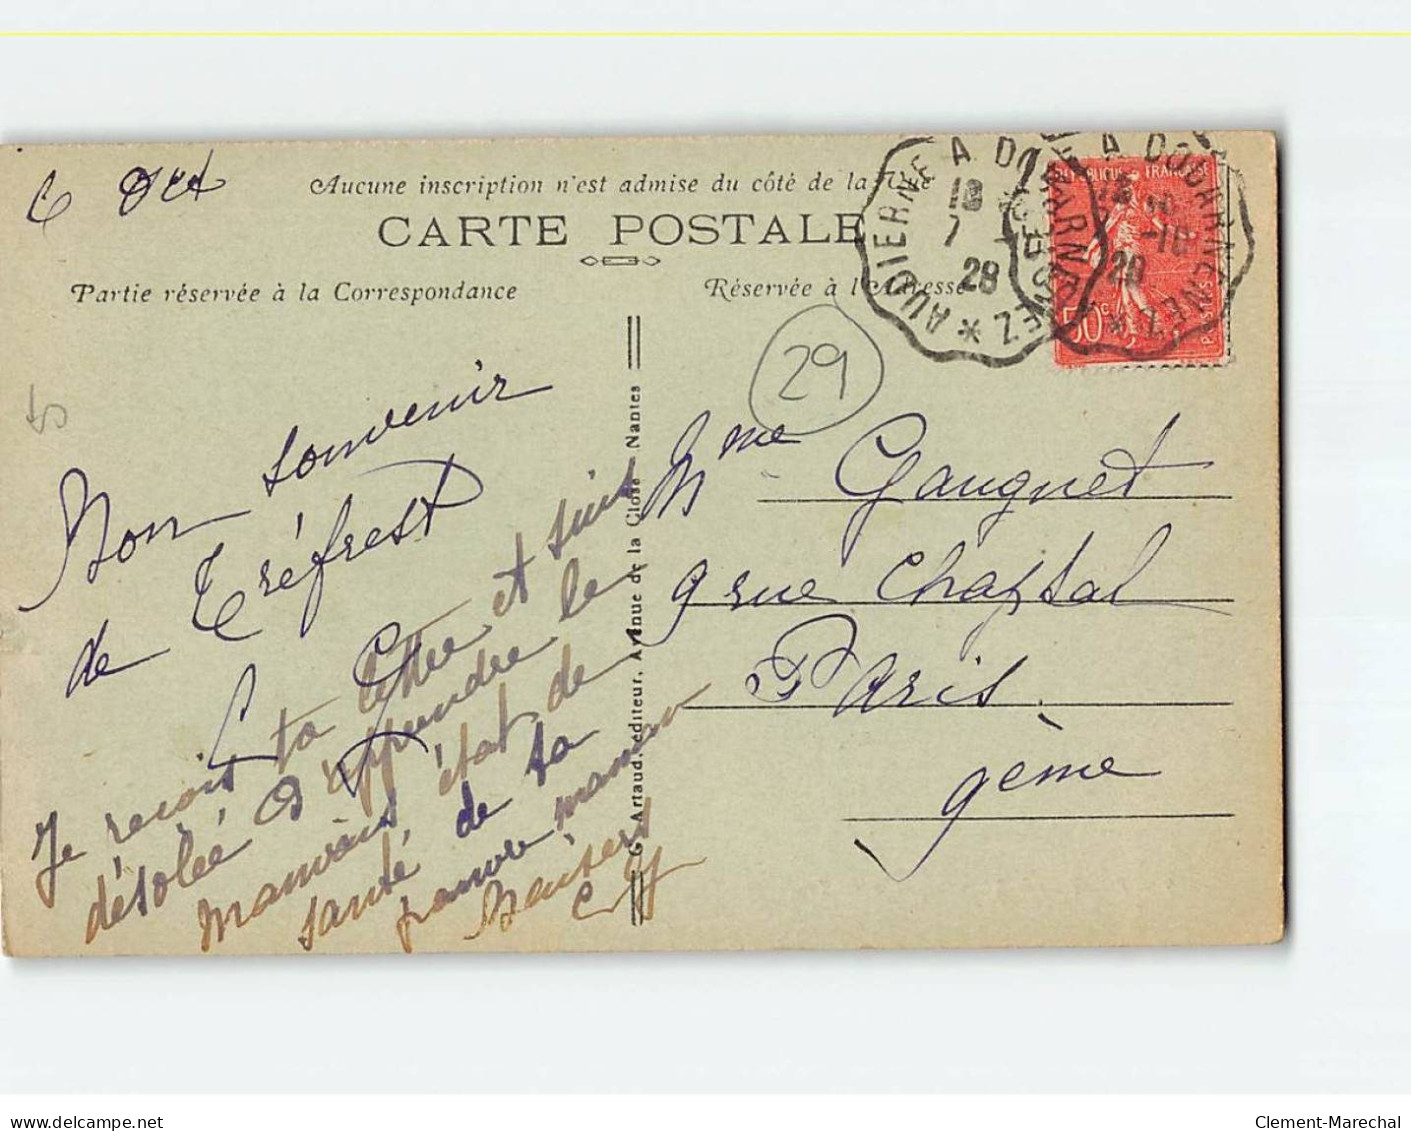 6 Oct
Aucune inscription n'est admise du côté de la Vue
CARTE POSTALE
Partie réservée à la Correspondance
Réservée à l'Adresse
AUDIERNE A DOUARNENEZ *
18
7 -
28
AUDIERNE A DOUARNENEZ *
-10
28
REPUBLIQUE FRANÇAISE
50c
POSTES
29
Mon souvenir
de Tréfrest
Je reçois ta lettre et suis
désolée d'apprendre le
mauvais état de
santé de ta
pauvre maman
Baisers
Mme Gauguet
9 rue Chaptal
Paris.
9ème
G. Artaud, éditeur, Avenue de la Close - Nantes
Delcampe.net
Clement-Marechal